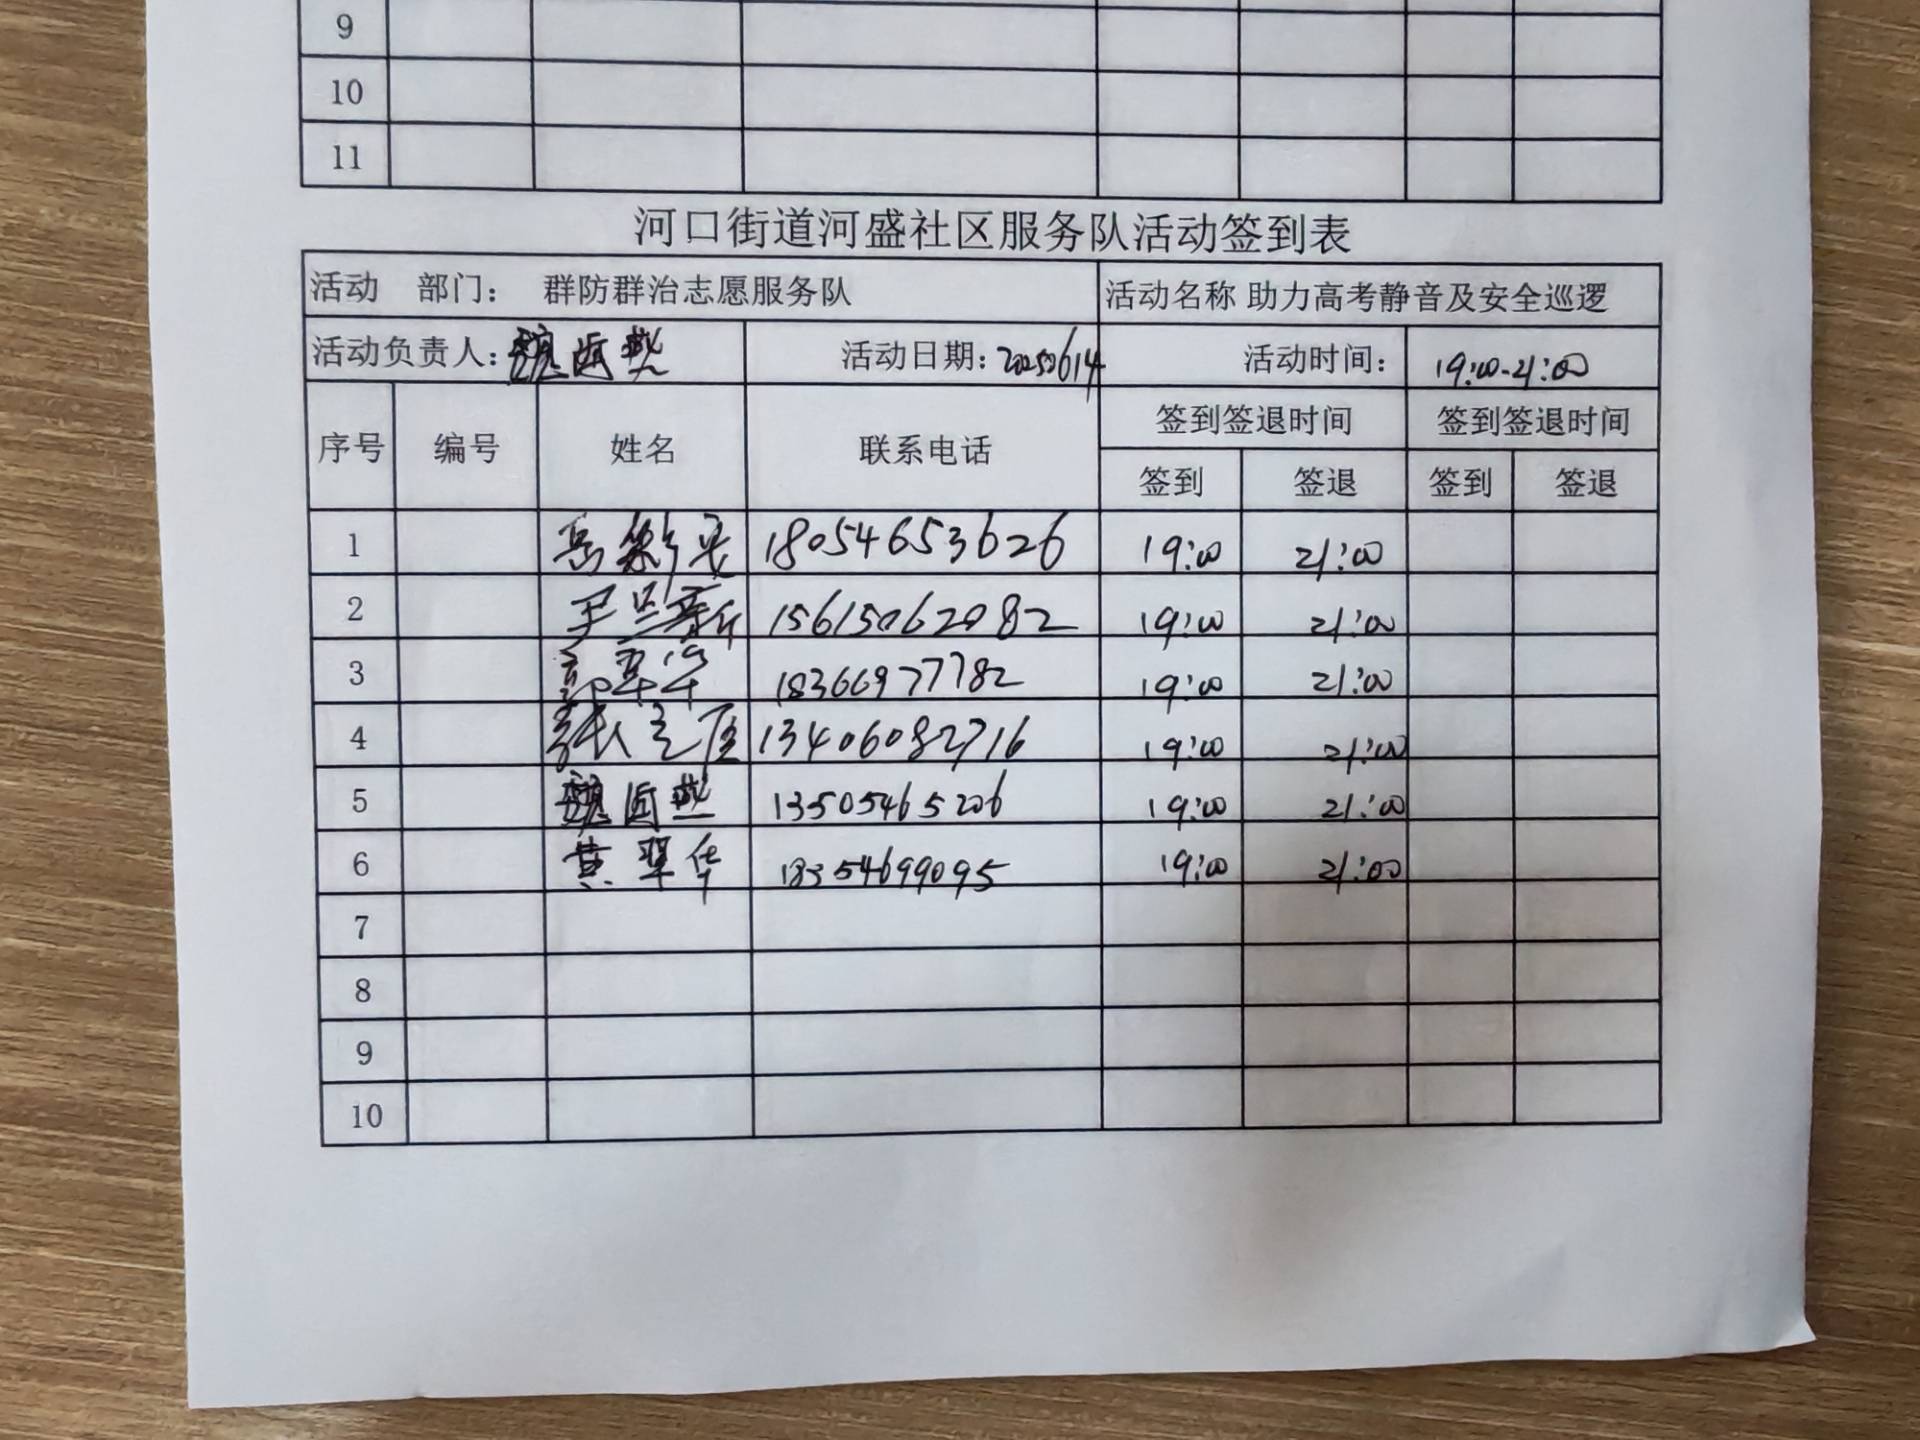 9
10
11
河口街道河盛社区服务队活动签到表
活动 部门： 群防群治志愿服务队 活动名称 助力高考静音及安全巡逻
活动负责人： 活动日期：20250614 活动时间： 19:00-21:00
序号 编号 姓名 联系电话 签到签退时间 签到签退时间
签到 签退 签到 签退
1 18054653626 19:00 21:00
2 尹兰新 15615062082 19:00 21:00
3 郭翠华 18366977782 19:00 21:00
4 13406082716 19:00 21:00
5 13505465206 19:00 21:00
6 黄翠华 18354699095 19:00 21:00
7
8
9
10